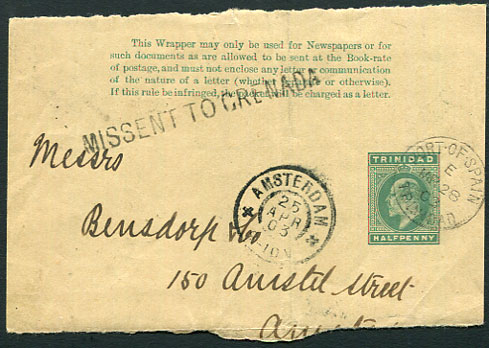 This Wrapper may only be used for Newspapers or for
such documents as are allowed to be sent at the Book-rate
of postage, and must not enclose any letter or communication
of the nature of a letter (whether or otherwise).
If this rule be infringed, the packet will be charged as a letter.
MISSENT TO GRENADA
Messrs
Bensdorp
150 Amstel Street
TRINIDAD
HALFPENNY
PORT-OF-SPAIN
E
28
03
AMSTERDAM
25
APR
03